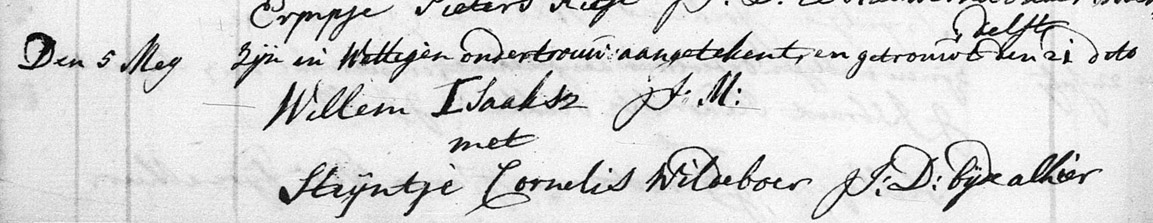 Pieters
delft
Den 5 Mey zijn in Wettigen ondertrouw aangetekent, en getrouwt den 21 dito
Willem Isaaksz J: M:
met
Steijntje Cornelis Wildeboer J: D: byde alhier